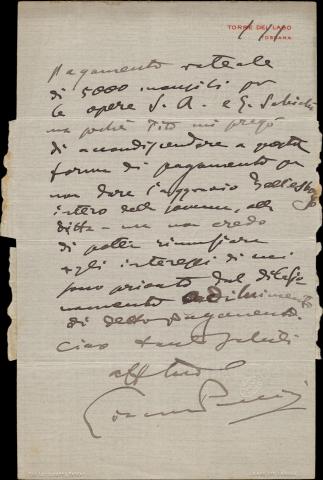 TORRE DEL LAGO
TOSCANA
Pagamento rateale
di 5000 mensili per
le opere S. A. e G. Schicchi
ma poichè Tito mi pregò
di accondiscendere a questa
forma di pagamento per
non dare l'aggravio
intero della somma, alla
Ditta – io non credo
di poter rinunziare
agli interessi di cui
sono privato dal
di detto pagamento.
Ciao tanti saluti
aff tuo
Giacomo Puccini